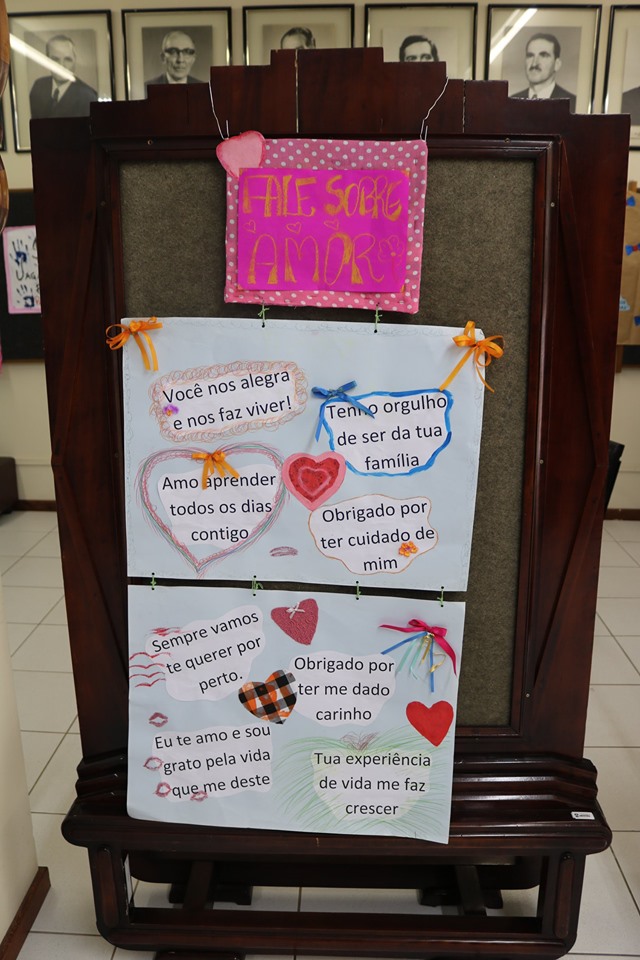 FALE SOBRE
AMOR
Você nos alegra
e nos faz viver!
Tenho orgulho
de ser da tua
família
Amo aprender
todos os dias
contigo
Obrigado por
ter cuidado de
mim
Sempre vamos
te querer por
perto.
Obrigado por
ter me dado
carinho
Eu te amo e sou
grato pela vida
que me deste
Tua experiência
de vida me faz
crescer